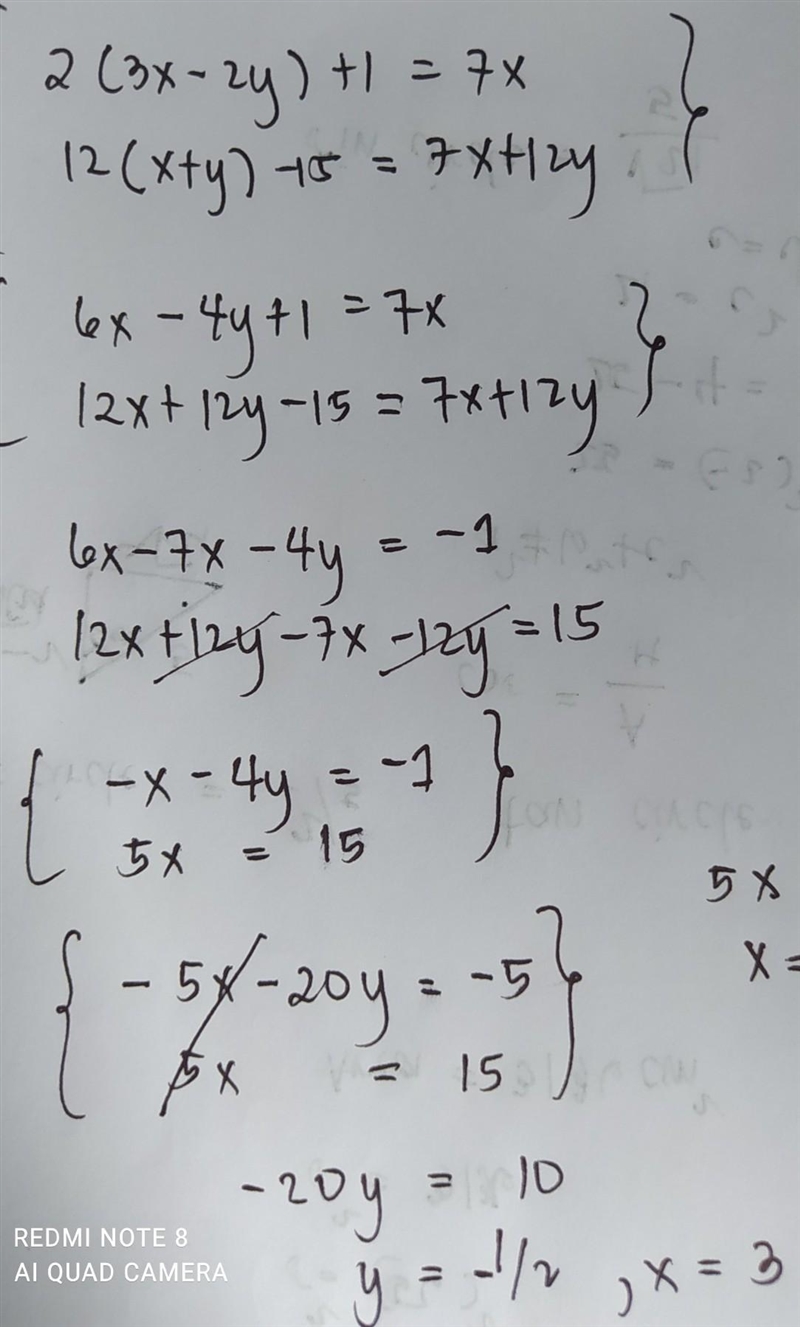 2(3x-2y)+1 = 7x
12(x+y)-15 = 7x+12y
6x - 4y+1 = 7x
12x+12y-15 = 7x+12y
6x-7x-4y = -1
12x+12y-7x-12y=15
-x-4y = -1
5x = 15
5x
x=
-5x-20y = -5
5x = 15
-20y = 10
y = -1/2, x = 3
REDMI NOTE 8
AI QUAD CAMERA